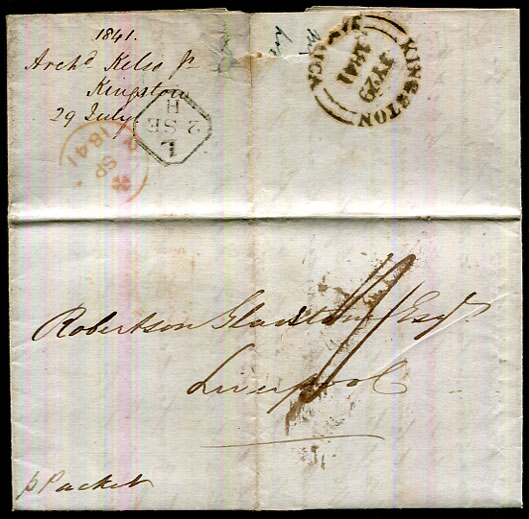 1841.
Archd Kelso Jr
Kingston
29 July
KINGSTON JAMAICA
JY 29
1841
L
2 SE
H
2
SP
1841
Robertson Gladstone Esqr
Liverpool
p Packet